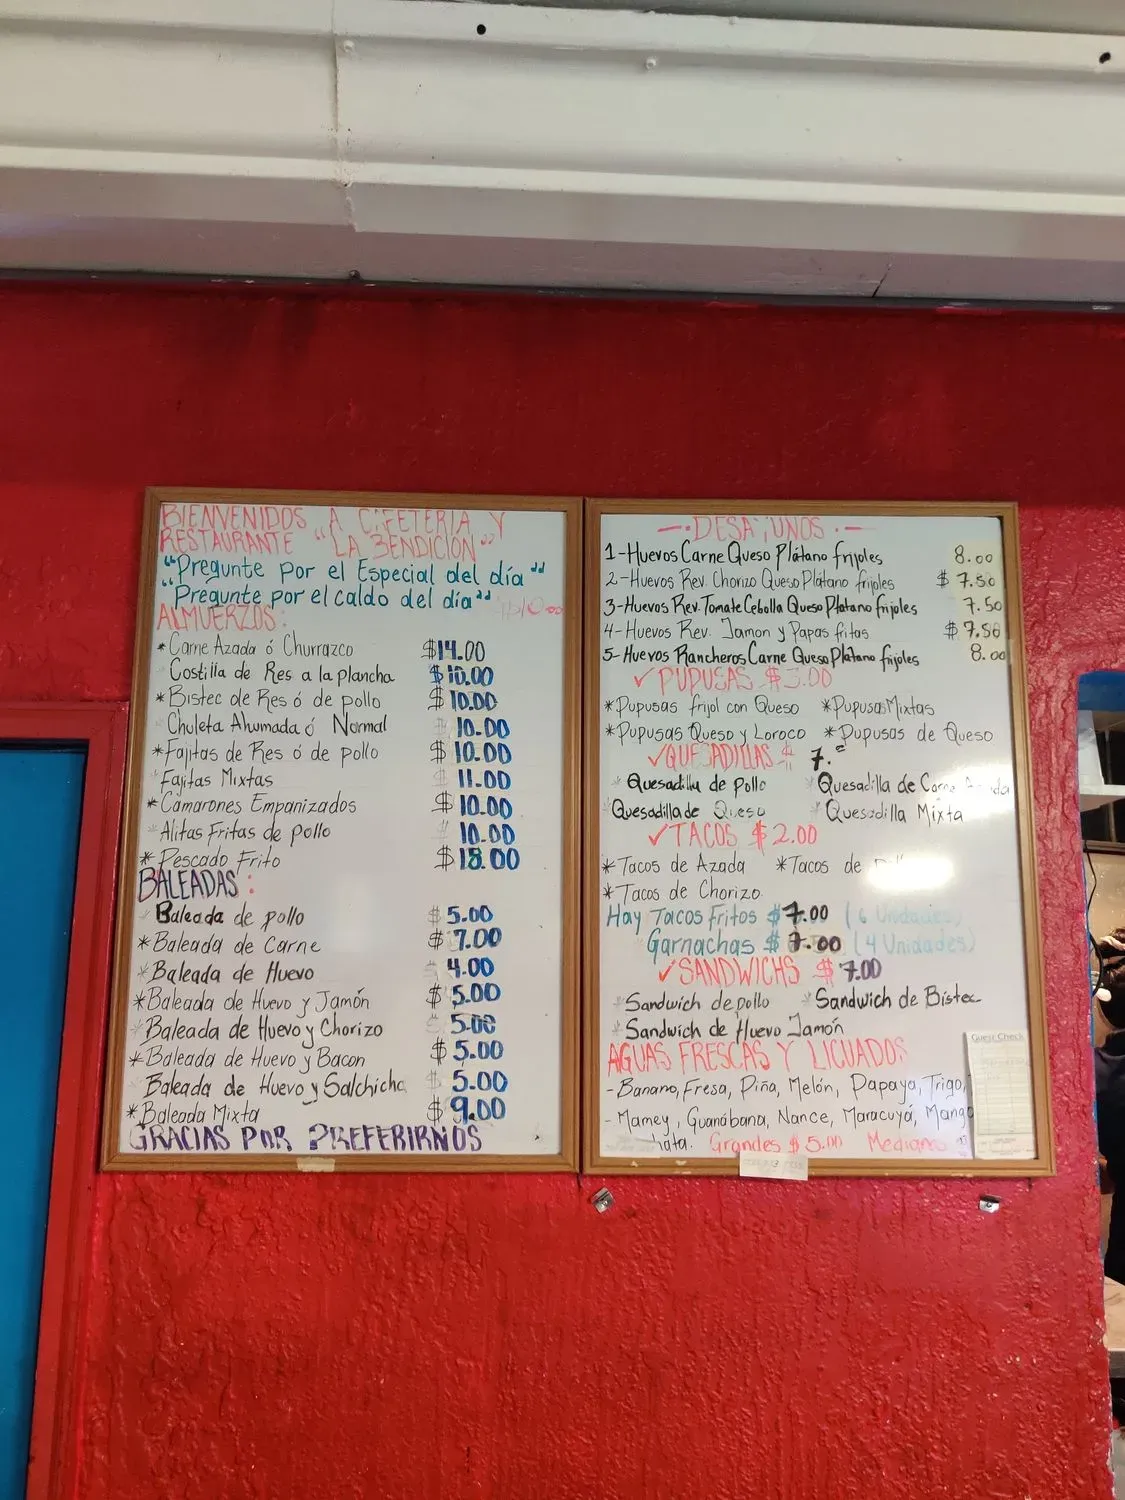 BIENVENIDOS A CAFETERIA Y
RESTAURANTE "LA BENDICION"
"Pregunte por el Especial del día"
"Pregunte por el caldo del día"
ALMUERZOS:
*Carne Azada ó Churrazco $14.00
Costilla de Res a la plancha $10.00
*Bistec de Res ó de pollo $10.00
Chuleta Ahumada ó Normal 10.00
*Fajitas de Res ó de pollo $10.00
Fajitas Mixtas $11.00
*Camarones Empanizados $10.00
*Alitas Fritas de pollo $10.00
*Pescado Frito $18.00
BALEADAS:
Baleada de pollo $5.00
*Baleada de Carne $7.00
*Baleada de Huevo 4.00
*Baleada de Huevo y Jamón $5.00
*Baleada de Huevo y Chorizo 5.00
*Baleada de Huevo y Bacon $5.00
Baleada de Huevo y Salchicha $5.00
*Baleada Mixta $9.00
GRACIAS POR PREFERIRNOS
-.DESAYUNOS.-
1-Huevos Carne Queso Plátano frijoles 8.00
2-Huevos Rev. Chorizo Queso Platano frijoles $7.50
3-Huevos Rev. Tomate Cebolla Queso Platano frijoles 7.50
4-Huevos Rev. Jamon y Papas fritas $7.50
5-Huevos Rancheros Carne Queso Platano frijoles 8.00
✓PUPUSAS $3.00
*Pupusas frijol con Queso *Pupusas Mixtas
*Pupusas Queso y Loroco *Pupusas de Queso
✓QUESADILLAS $7.
*Quesadilla de pollo *Quesadilla de Carne Azada
Quesadilla de Queso *Quesadilla Mixta
✓TACOS $2.00
*Tacos de Azada *Tacos de
*Tacos de Chorizo
Hay Tacos Fritos $7.00 (6 Unidades)
Garnachas $7.00 (4 Unidades)
✓SANDWICHS $7.00
*Sandwich de pollo *Sandwich de Bistec
*Sandwich de Huevo Jamón
AGUAS FRESCAS Y LICUADOS
-Banano, Fresa, Piña, Melón, Papaya, Trigo,
-Mamey, Guanábana, Nance, Maracuyá, Mango
Grandes $5.00 Mediano
Guest Check